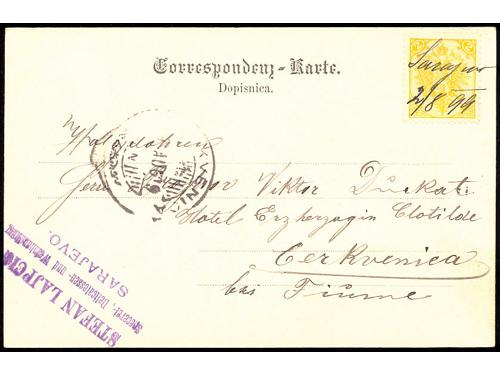 Correspondenz-Karte.
Dopisnica.
2
Sarajevo
2/8 99
Herrn
Viktor
Hotel Erzherzogin Clotilde
Cerkvenica
bei Fiume
STEFAN LAJPCIG
Specerei-, Delicatessen- und
SARAJEVO.